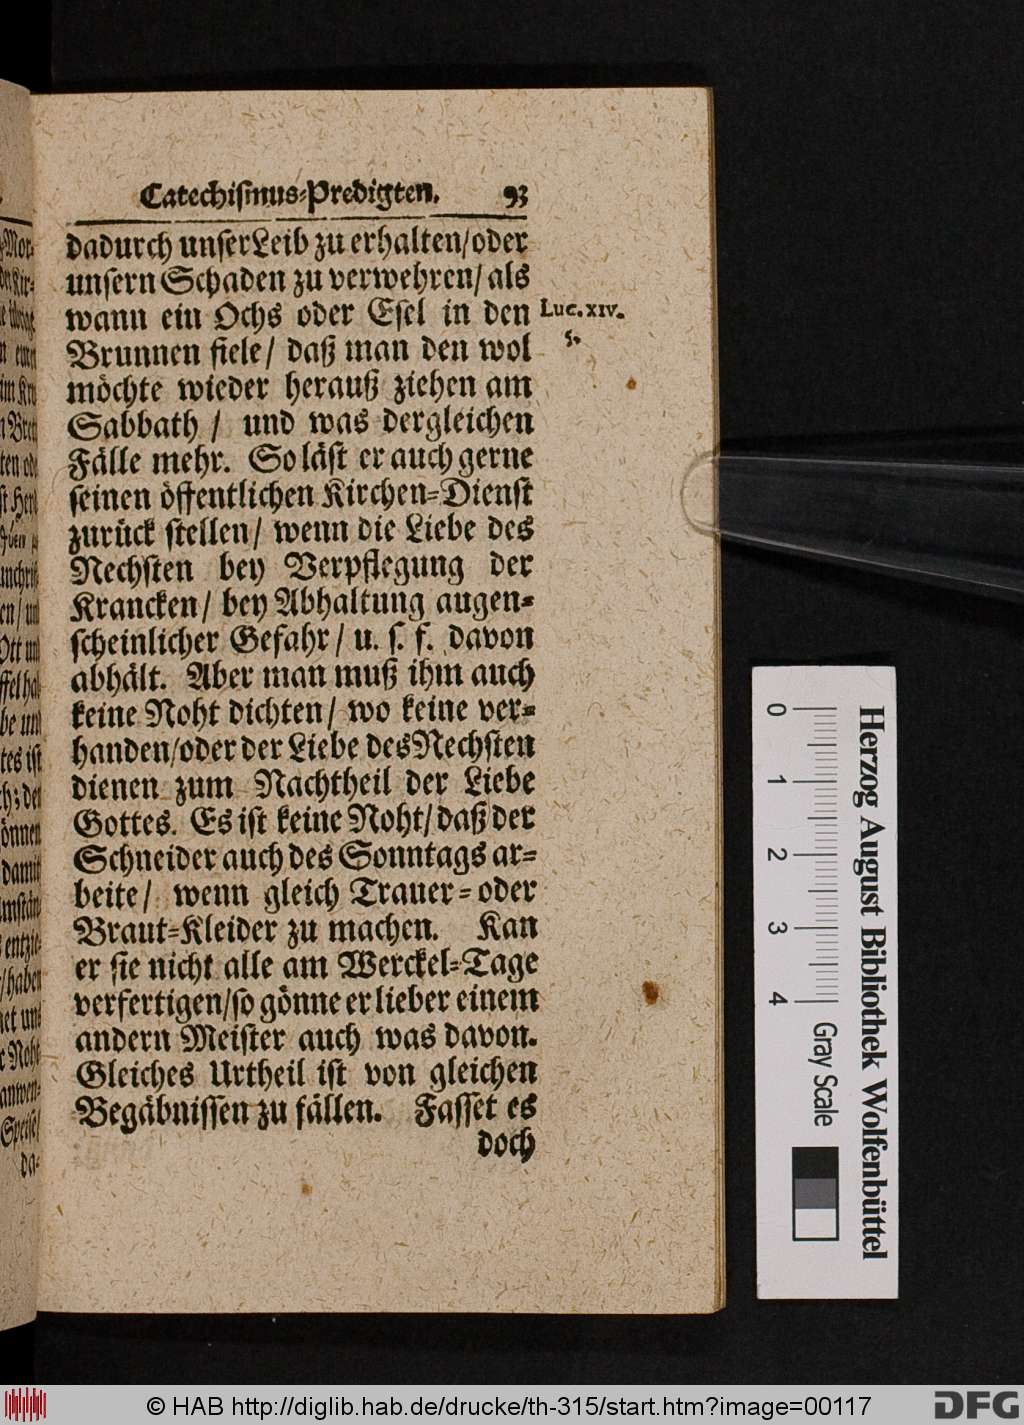 Catechismus-Predigten. 93
dadurch unser Leib zu erhalten/oder
unsern Schaden zu verwehren/ als
wann ein Ochs oder Esel in den
Luc. XIV.
5.
Brunnen fiele/ daß man den wol
möchte wieder herauß ziehen am
Sabbath/ und was dergleichen
Fälle mehr. So läst er auch gerne
seinen öffentlichen Kirchen-Dienst
zurück stellen/ wenn die Liebe des
Nechsten bey Verpflegung der
Krancken/ bey Abhaltung augen-
scheinlicher Gefahr/ u. s. f. davon
abhält. Aber man muß ihm auch
keine Noht dichten/ wo keine ver-
handen/oder der Liebe des Nechsten
dienen zum Nachtheil der Liebe
Gottes. Es ist keine Noht/ daß der
Schneider auch des Sonntags ar-
beite/ wenn gleich Trauer- oder
Braut-Kleider zu machen. Kan
er sie nicht alle am Werckel-Tage
verfertigen/so gönne er lieber einem
andern Meister auch was davon.
Gleiches Urtheil ist von gleichen
Begäbnissen zu fällen. Fasset es
doch
0 1 2 3 4
Gray Scale
Herzog August Bibliothek Wolfenbüttel
© HAB http://diglib.hab.de/drucke/th-315/start.htm?image=00117
DFG